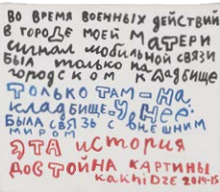 ВО ВРЕМЯ ВОЕННЫХ ДЕЙСТВИЙ
В ГОРОДЕ МОЕЙ МАТЕРИ
СИГНАЛ МОБИЛЬНОЙ СВЯЗИ
БЫЛ ТОЛЬКО НА
ГОРОДСКОМ КЛАДБИЩЕ
ТОЛЬКО ТАМ - НА
КЛАДБИЩЕ - У НЕЁ
БЫЛА СВЯЗЬ С ВНЕШНИМ
МИРОМ
ЭТА ИСТОРИЯ
ДОСТОЙНА КАРТИНЫ
KAKHIDZE 2014-15